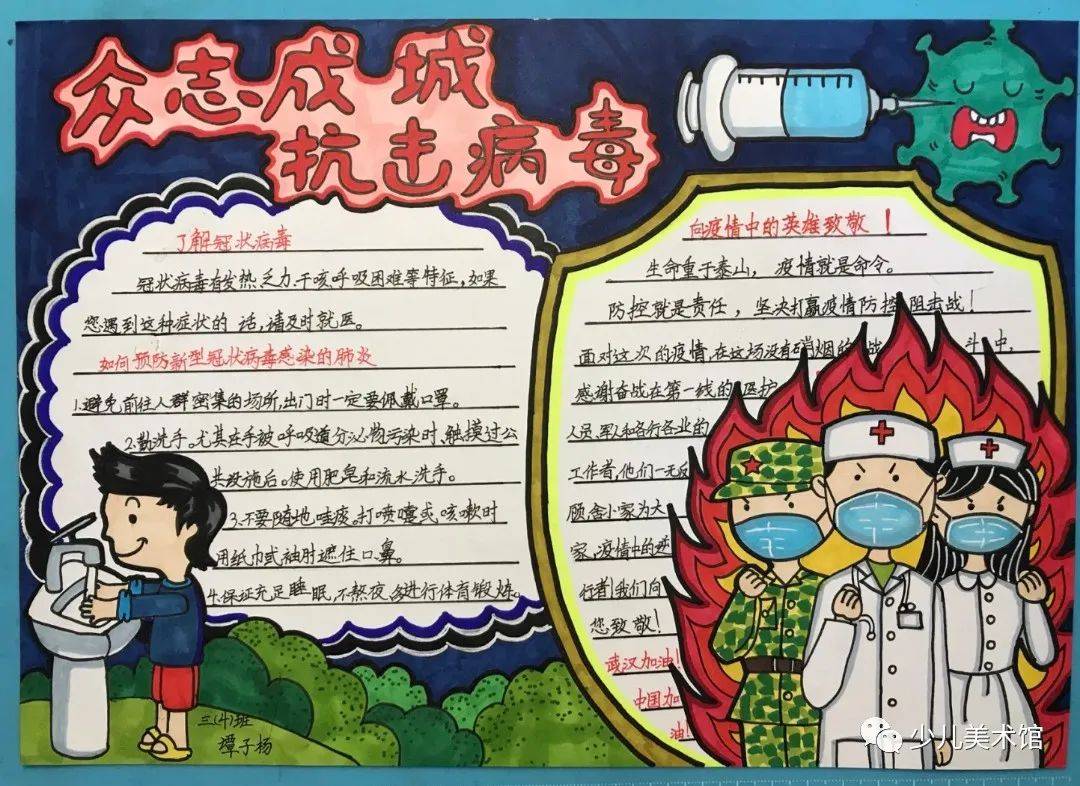 众志成城
抗击病毒
了解冠状病毒
冠状病毒有发热、乏力、干咳呼吸困难等特征,如果
您遇到这种症状的 话,请及时就医。
如何预防新型冠状病毒感染的肺炎
1.避免前往人群密集的场所,出门时一定要佩戴口罩。
2.勤洗手。尤其在手被呼吸道分泌物污染时、触摸过公
共设施后。使用肥皂和流水洗手。
3.不要随地吐痰。打喷嚏或咳嗽时
用纸巾或袖肘遮住口、鼻。
4.保证充足睡眠,不熬夜,多进行体育锻炼。
三(4)班
子杨
向疫情中的英雄致敬!
生命重于泰山,疫情就是命令。
防控就是责任,坚决打赢疫情防控阻击战!
面对这次的疫情,在这场没有硝烟的战 斗中,
感谢奋战在第一线的医护
人员,军人和各行各业的
工作者,他们一无反
顾舍小家为大
家,疫情中的逆
行者!我们向
您致敬!
武汉加油!
中国加
油!
少儿美术馆